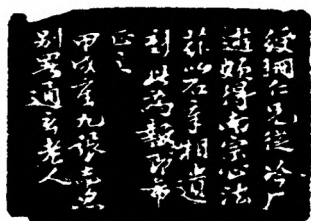 綬珊仁兄從厂
遊頗得南宗心法
茲以石章相遺
刻此為報即希
正之
甲戌重九張志魚
別署通玄老人